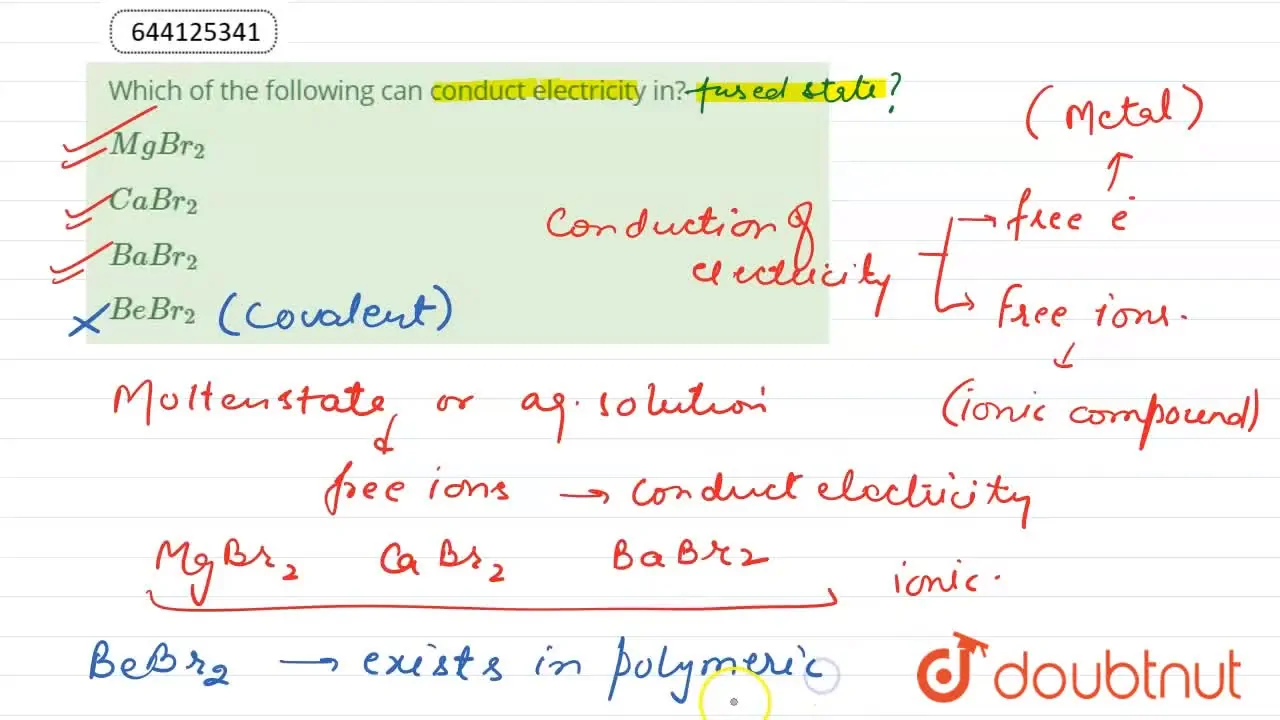 644125341
Which of the following can conduct electricity in? fused state?
MgBr2
CaBr2
BaBr2
BeBr2 (Covalent)
(Metal)
free e
Conduction of
electricity
Free ions.
(ionic compound)
Molten state or aq. solution
free ions → conduct electricity
MgBr2 CaBr2 BaBr2
ionic.
BeBr2 → exists in polymeric
doubtnut